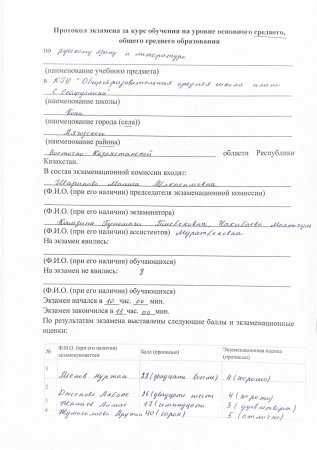 Протокол экзамена за курс обучения на уровне основного среднего,
общего среднего образования
по русскому языку и литературе
(наименование учебного предмета)
в КГУ "Общеобразовательная средняя школа имени
С. Сейфуллина"
(наименование школы)
(наименование города (села))
Аягозского
(наименование района)
Восточно-Казахстанской области Республики
Казахстан.
В состав экзаменационной комиссии входят:
Шарипова
(Ф.И.О. (при его наличии) председателя экзаменационной комиссии)
(Ф.И.О. (при его наличии) экзаменатора)
(Ф.И.О. (при его наличии) ассистентов) Муратбековна
На экзамен явились:
(Ф.И.О. (при его наличии) обучающихся)
На экзамен не явились:
(Ф.И.О. (при его наличии) обучающихся)
Экзамен начался в 10 час. 00 мин.
Экзамен закончился в 13 час. 00 мин.
По результатам экзамена выставлены следующие баллы и экзаменационные
оценки:
№ Ф.И.О. (при его наличии) экзаменующегося Балл (прописью) Экзаменационная оценка (прописью)
1 28 (двадцать восемь) 4 (хорошо)
2 26 (двадцать шесть) 4 (хорошо)
3 3 (удовлетворит)
4 40 (сорок) 5 (отлично)